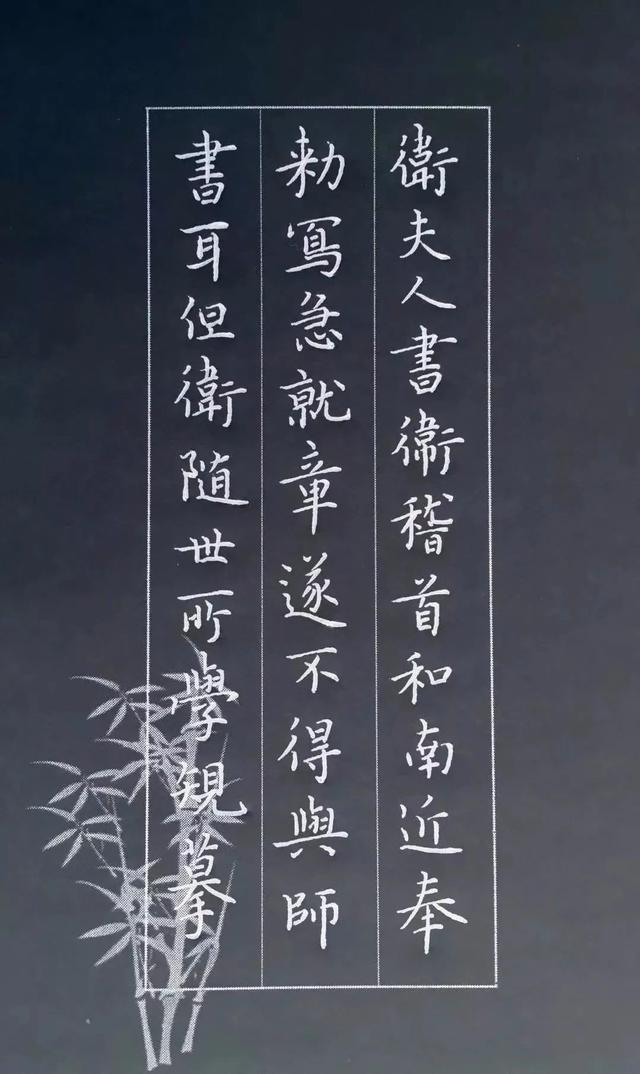 衛夫人書衛稽首和南近奉
勑寫急就章遂不得與師
書耳但衛隨世所學規摹